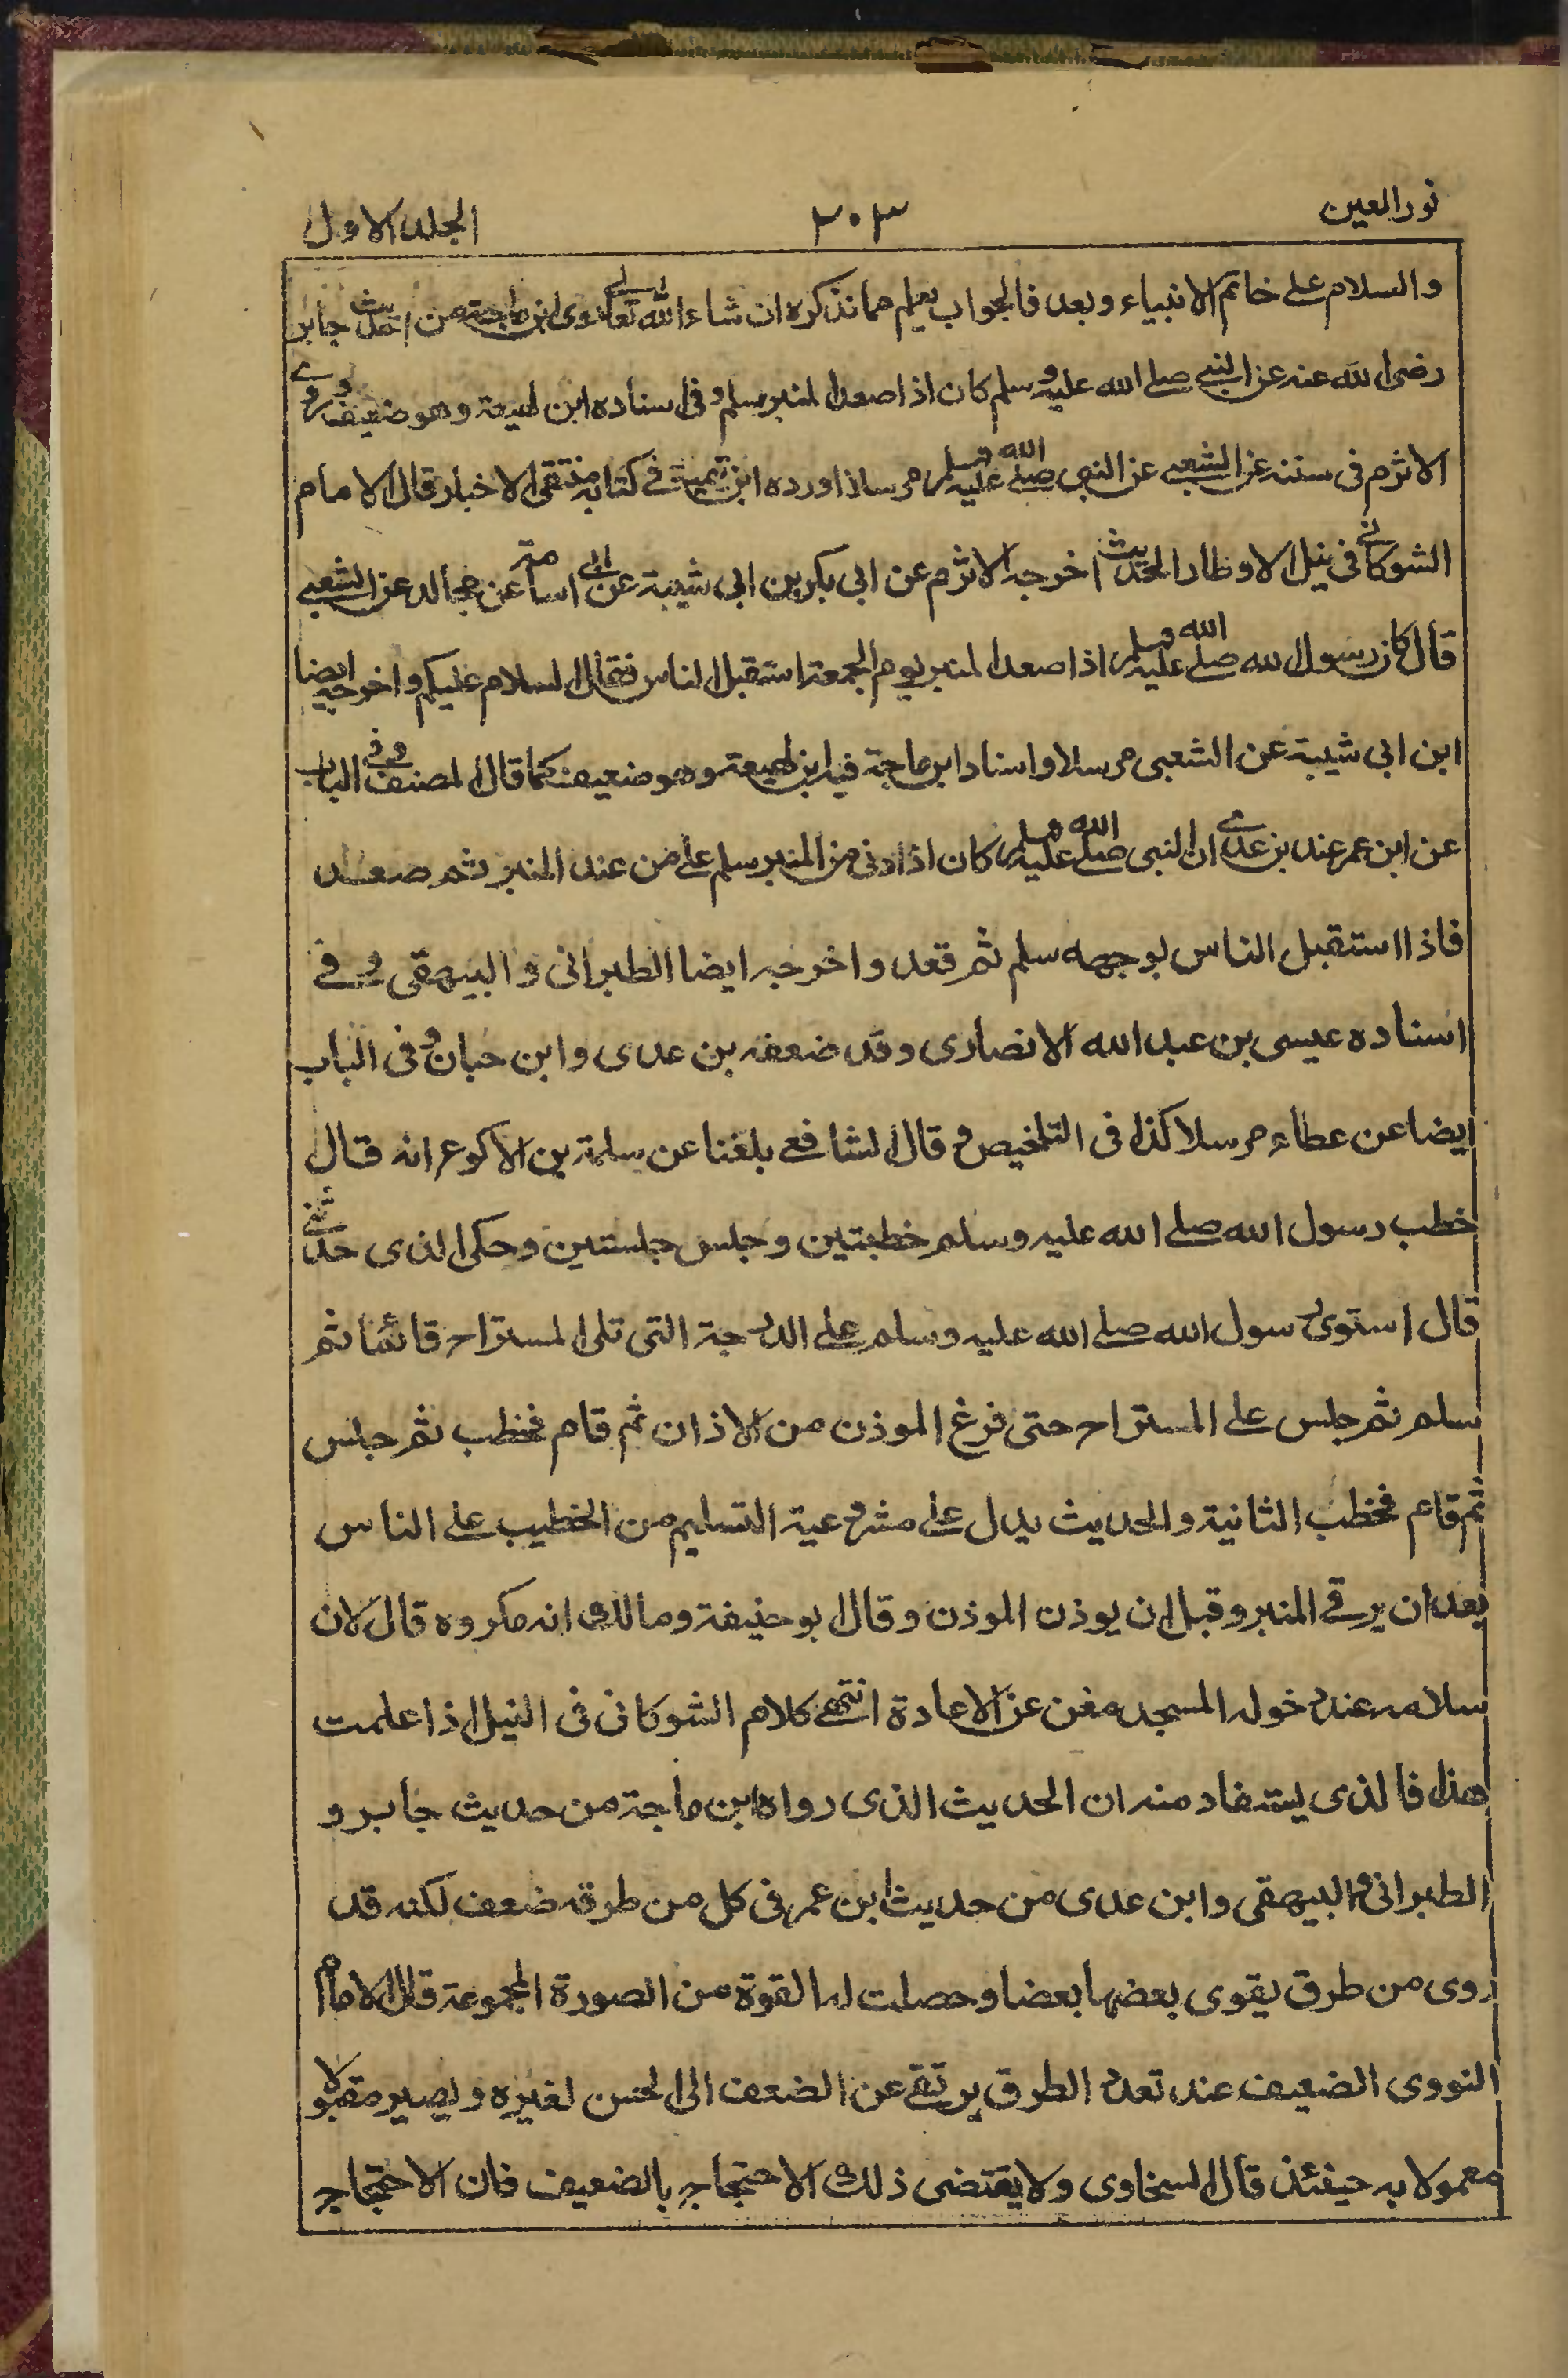 نور العين
٣٠٣
الجلد الاول
والسلام على خاتم الانبياء وبعد فالجواب يعلم مما نذكره ان شاء الله تعالى روى ابن ماجة من حديث جابر
رضى الله عنه عن النبى صلے الله عليه وسلم كان اذا صعد المنبر سلم وفى اسناده ابن لهيعة وهو ضعيف وروے
الاثرم فى سننه عن الشعبى عن النبى صلے الله عليه وسلم مرسلا اورده ابن تيمية فے كتابه منتقى الاخبار قال الامام
الشوكانے فى نيل الاوطار الحديث اخرجه الاثرم عن ابى بكر بن ابى شيبة عن ابى اسامة عن مجالد عن الشعبے
قال كان رسول الله صلے الله عليه وسلم اذا صعد المنبر يوم الجمعة استقبل الناس فقال السلام عليكم واخرجه ايضا
ابن ابى شيبة عن الشعبى مرسلا واسناد ابن ماجة فيه ابن لهيعة وهو ضعيف كما قال المصنف وفے الباب
عن ابن عمر عند بن عدے ان النبى صلے الله عليه وسلم كان اذا دنى من المنبر سلم على من عند المنبر ثم صعد
فاذا استقبل الناس بوجهه سلم ثم قعد واخرجه ايضا الطبرانى والبيهقى وفے
اسناده عيسى بن عبد الله الانصارى وقد ضعفه بن عدى وابن حبان وفى الباب
ايضا عن عطاء مرسلا كذا فى التلخيص وقال الشافعے بلغنا عن سلمة بن الاكوع انه قال
خطب رسول الله صلے الله عليه وسلم خطبتين وجلس جلستين وحكى الذى حدثنے
قال استوى رسول الله صلے الله عليه وسلم على الدرجة التى تلى المستراح قائما ثم
سلم ثم جلس على المستراح حتى فرغ الموذن من الاذان ثم قام فخطب ثم جلس
ثم قام فخطب الثانية والحديث يدل على مشروعية التسليم من الخطيب على الناس
بعد ان يرقے المنبر وقبل ان يوذن الموذن وقال ابو حنيفة ومالك انه مكروه قال لان
سلامه عند دخوله المسجد مغن عن الاعادة انتهے كلام الشوكانى فى النيل اذا علمت
هذا فالذى يستفاد منه ان الحديث الذى رواه ابن ماجة من حديث جابر و
الطبرانى والبيهقى وابن عدى من حديث ابن عمر فى كل من طرقه ضعف لكنه قد
روى من طرق يقوى بعضها بعضا وحصلت له القوة من الصورة المجموعة قال الامام
النووى الضعيف عند تعدد الطرق يرتقے عن الضعف الى الحسن لغيره ويصير مقبولا
معمولا به حينئذ قال السخاوى ولا يقتضى ذلك الاحتجاج بالضعيف فان الاحتجاج